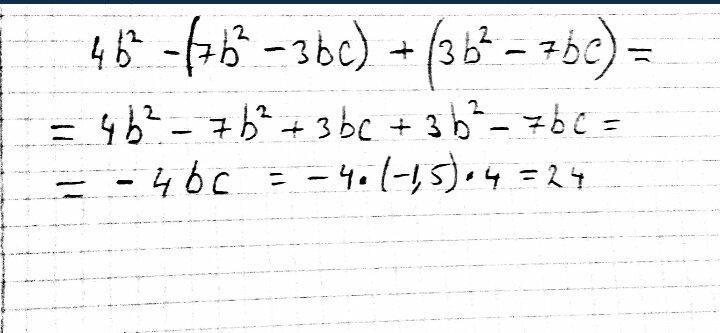 4b² - (7b² - 3bc) + (3b² - 7bc) =
= 4b² - 7b² + 3bc + 3b² - 7bc =
= - 4bc = - 4·(-1,5)·4 = 24